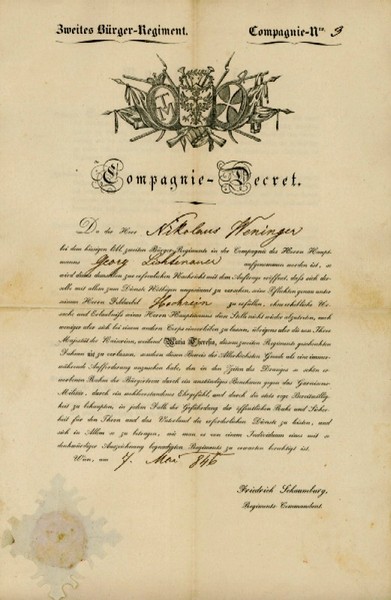 Zweites Bürger-Regiment. Compagnie-Nro. 3
Compagnie-Decret.
Da der Herr Nikolaus Weninger
bei dem hiesigen löbl. zweiten Bürger-Regimente in die Compagnie des Herrn Haupt-
manns Georg aufgenommen worden ist, so
wird dieses demselben zur erforderlichen Nachricht mit dem Auftrage eröffnet, daß sich der-
selbe mit allem zum Dienst Nöthigen ungesäumt zu versehen, seine Pflichten genau unter
seinem Herrn Feldwebel Hochrein zu erfüllen, ohne erhebliche Ur-
sache und Erlaubniß seines Herrn Hauptmanns dem Stelle nicht wieder abzutreten, noch
weniger aber sich bei einem andern Corps einverleiben zu lassen, übrigens aber die von Ihrer
Majestät der Kaiserin, weiland Maria Theresia, diesem zweiten Regimente geschenkten
Fahnen nie zu verlassen, sondern diesen Beweis der Allerhöchsten Gnade als eine immer-
währende Aufforderung anzusehen habe, den in den Zeiten des Dranges so schön er-
worbenen Ruhm des Bürgerthums durch ein anständiges Benehmen gegen das Garnisons-
Militär, durch ein unbescholtenes Ehrgefühl, und durch die stets rege Bereitwillig-
keit zu behaupten, in jedem Falle der Gefährdung der öffentlichen Ruhe und Sicher-
heit für den Thron und das Vaterland die erforderlichen Dienste zu leisten, und
sich in Allem so zu betragen, wie man es von einem Individuum eines mit so
denkwürdiger Auszeichnung begnadigten Regiments zu erwarten berechtigt ist.
Wien, am 7. Mai 846
Friedrich Schaumburg,
Regiments-Commandant.